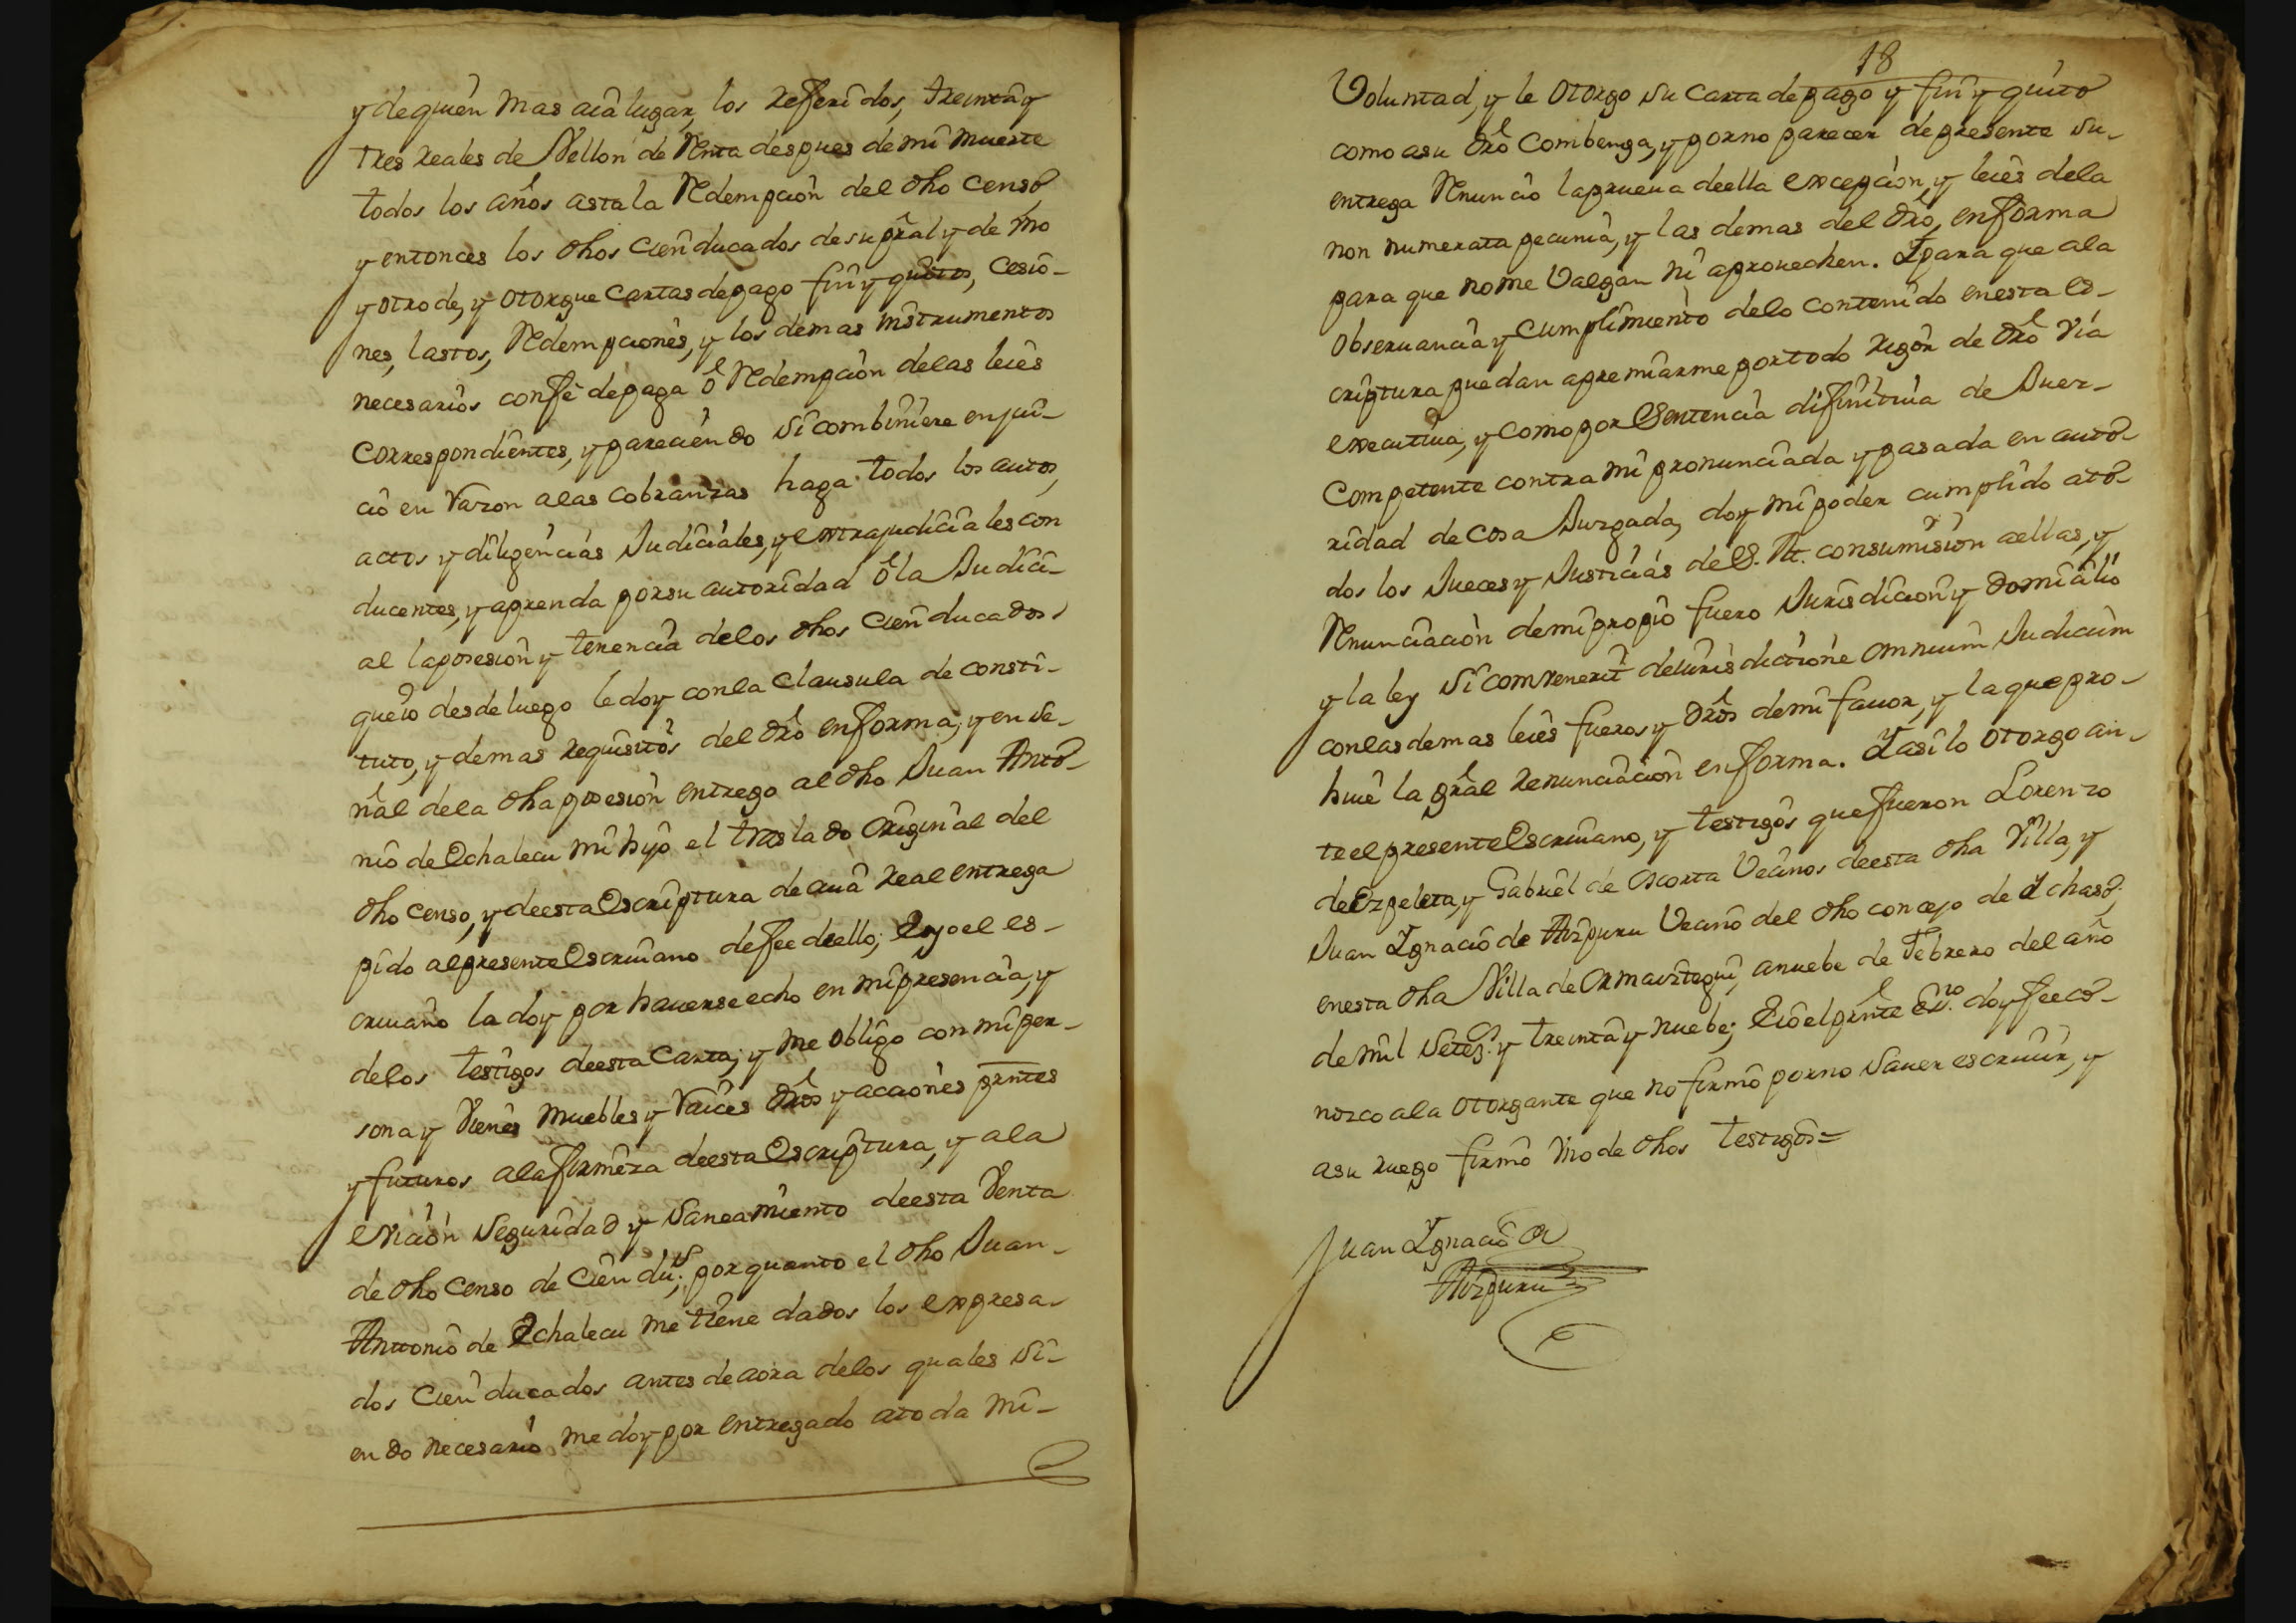 y de quien mas aia lugar, los referidos, treinta y
tres reales de Vellon de Renta despues de mi muerte
todos los años asta la Redempcion del dho censo,
y entonces los dhos cien ducados de su pral y de lo
y otro de, y otorgue cartas de pago fin y quitos, cesio-
nes, lastos, Redempciones, y los demas instrumentos
necesarios con fe de paga ô Redempcion de las leies
correspondientes, y pareciendo si combiniere en jui-
cio en Razon a las cobranzas haga todos los autos,
actos y diligencias Judiciales, y extrajudiciales con
ducentes, y aprenda por su autoridad ô la Judici-
al la posesion y tenencia de los dhos cien ducados
que io desde luego le doy con la clausula de consti-
tuto, y demas requisitos del dro en forma; y en se-
ñal de la dha posesion entrego al dho Juan Anto-
nio de Echalecu mi hijo el traslado original del
dho censo, y de esta Escriptura de cuia real entrega
pido al presente Escriuano de fee de ello; E yo el es-
criuano la doy por hauerse echo en mi presencia, y
de los testigos de esta Carta; y me obligo con mi per-
sona y Vienes muebles y Raices dros y acciones prntes
y futuros a la firmeza de esta Escriptura, y a la
eviccion seguridad y saneamiento de esta Venta
de dho censo de Cien dus; por quanto el dho Juan
Antonio de Echalecu me tiene dados los expresa-
dos Cien ducados antes de aora de los quales si-
endo necesario me doy por entregado a toda mi-
18
Voluntad, y le otorgo su carta de pago y fin y quito
como a su dro combenga, y por no parecer de presente su-
entrega Renuncio la prueua de ella excepcion, y leies de la
non numerata pecunia, y las demas del dro, en forma
para que no me Valgan ni aprouechen. Y para que a la
obseruancia y cumplimiento de lo contenido en esta es-
criptura puedan apremiarme por todo rigor de dro Via
executiua, y como por Sentencia difinitiua de Juez-
competente contra mi pronunciada y pasada en auto-
ridad de cosa Juzgada, doy mi poder cumplido a to-
dos los Jueces y Justicias de S. M. con sumision a ellas, y
Renunciacion de mi propio fuero Jurisdicion y domicilio
y la ley si convenerit de iurisdictione omnium Judicum
con las demas leies fueros y dros de mi fauor, y la que pro-
hiue la gral renunciacion en forma. Y asi lo otorgo an-
te el presente Escriuano, y testigos que fueron Lorenzo
de Ezpeleta, y Gabriel de Ascorta Vecinos de esta dha Villa, y
Juan Ignacio de Aizpuru Vecino del dho concejo de Ichaso;
en esta dha Villa de Ormaiztegui, a nuebe de Febrero del año
de mil setez.s y treinta y nuebe; E io el prnte Ess.no doy fee co-
nozco a la otorgante que no firmô por no sauer escriuir, y
a su ruego firmô vno de dhos testigos=
Juan Ignacio de
Aizpuru